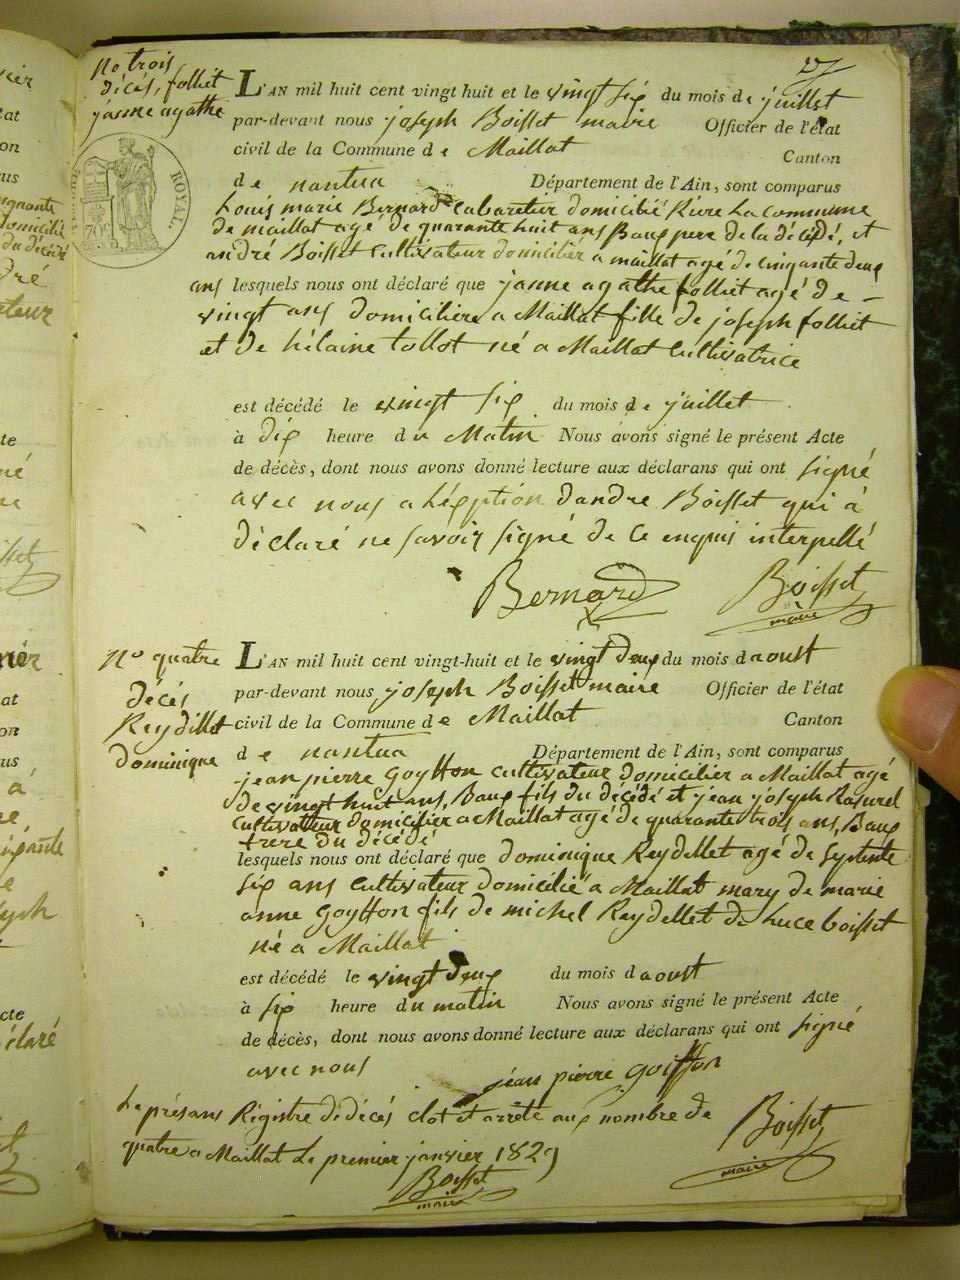 27
No trois
décés, folliet
janne agathe
ROYAL
L'AN mil huit cent vingt huit et le vingt six du mois de juillet
par-devant nous joseph Boisset maire Officier de l'état
civil de la Commune de Maillat Canton
de nantua Département de l'Ain, sont comparus
Louis marie Bernard Cabaretier domicilié Rière La commune
de maillat agé de quarante huit ans Baux pere de la décédé, et
andré Boisset Cultivateur domicilier a maillat agé de cinqante deux
ans lesquels nous ont déclaré que janne agathe folliet agé de -
vingt ans domicilière a Maillat fille de joseph folliet
et de hélaine tollot né a Maillat Cultivatrice
est décédé le vingt six du mois de juillet
à dix heure du Matin Nous avons signé le présent Acte
de décès, dont nous avons donné lecture aux déclarans qui ont signé
avec nous a Léxption dandre Boisset qui à
déclaré ne savoir signé de Ce enquis interpellé
Bernard Boisset
maire
No quatre
décés
Reydillet
dominique
L'AN mil huit cent vingt-huit et le vingt deux du mois daoust
par-devant nous joseph Boisset maire Officier de l'état
civil de la Commune de Maillat Canton
de nantua Département de l'Ain, sont comparus
jean pierre Goyffon Cultivateur domicilier a Maillat agé
de vingt huit ans, Baux fils du décédé et jean joseph Rasurel
Cultivateur domicilier a Maillat agé de quarante trois ans, Baux
frere du décédé
lesquels nous ont déclaré que dominique Reydellet agé de septente
six ans Cultivateur domicilié a Maillat mary de marie
anne Goyffon fils de michel Reydellet de Luce boisset
né a Maillat
est décédé le vingt deux du mois daoust
à six heure du matin Nous avons signé le présent Acte
de décès, dont nous avons donné lecture aux déclarans qui ont signé
avec nous
jean pierre goiffon
Le présans Registre de décés Clot et arrêté aux nombre de
quatre a Maillat Le premier janvier 1829
Boisset
maire
Boisset
maire